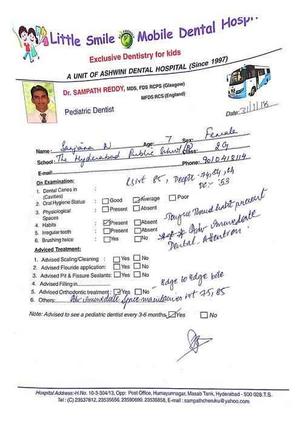 Little Smile Mobile Dental Hospi
Exclusive Dentistry for kids
A UNIT OF ASHWINI DENTAL HOSPITAL (Since 1997)
Dr. SAMPATH REDDY, MDS, FDS RCPS (Glasgow)
MFDS RCS (England)
Pediatric Dentist
Date:
Name: Sanjana N Age: 7 Sex: Female
School: The Hyderabad Public School Class: 2G
E-mail: Phone:
On Examination:
1. Dental Caries in (Cavities)
2. Oral Hygiene Status : Good Average Poor
3. Physiological Spaces : Present Absent
4. Habits : Present Absent
Tongue Thrust habit present
5. Irregular teeth : Present Absent
6. Brushing twice : Yes No
Immediate
Dental Attention.
Advised Treatment:
1. Advised Scaling/Cleaning : Yes No
2. Advised Flouride application: Yes No
3. Advised Pit & Fissure Sealants: Yes No
4. Advised Filling in
5. Advised Orthodontic treatment : Yes No Edge to Edge bite
6. Others: Immediate Space maintainer 75, 85
Note: Advised to see a pediatric dentist every 3-6 months Yes No
Hospital Address: H.No. 10-3-304/13, Opp: Post Office, Humayunnagar, Masab Tank, Hyderabad - 500 028 T.S.
Tel : (C) 23537812, 23535656, 23590690, 23535858, E-mail : sampathcheruku@yahoo.com